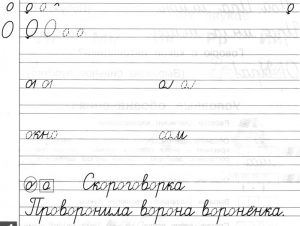 о
О О О о о
ог ог ол ол
окно сом
о о Скороговорка
Проворонила ворона воронёнка.